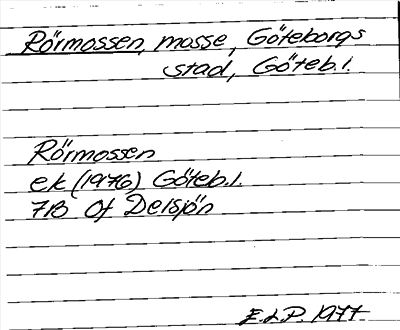 Rörmossen, mosse, Göteborgs
stad, Göteb. l.
Rörmossen
ek (1976) Göteb. l.
7B 0f Delsjön
E.L.P. 1977